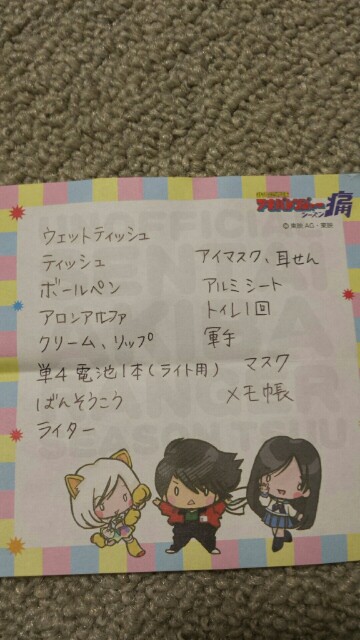 痛
© 東映AG・東映
ウェットティッシュ
ティッシュ
ボールペン
アロンアルファ
クリーム、リップ
単4電池1本(ライト用)
ばんそうこう
ライター
アイマスク、耳せん
アルミシート
トイレ1回
軍手
マスク
メモ帳